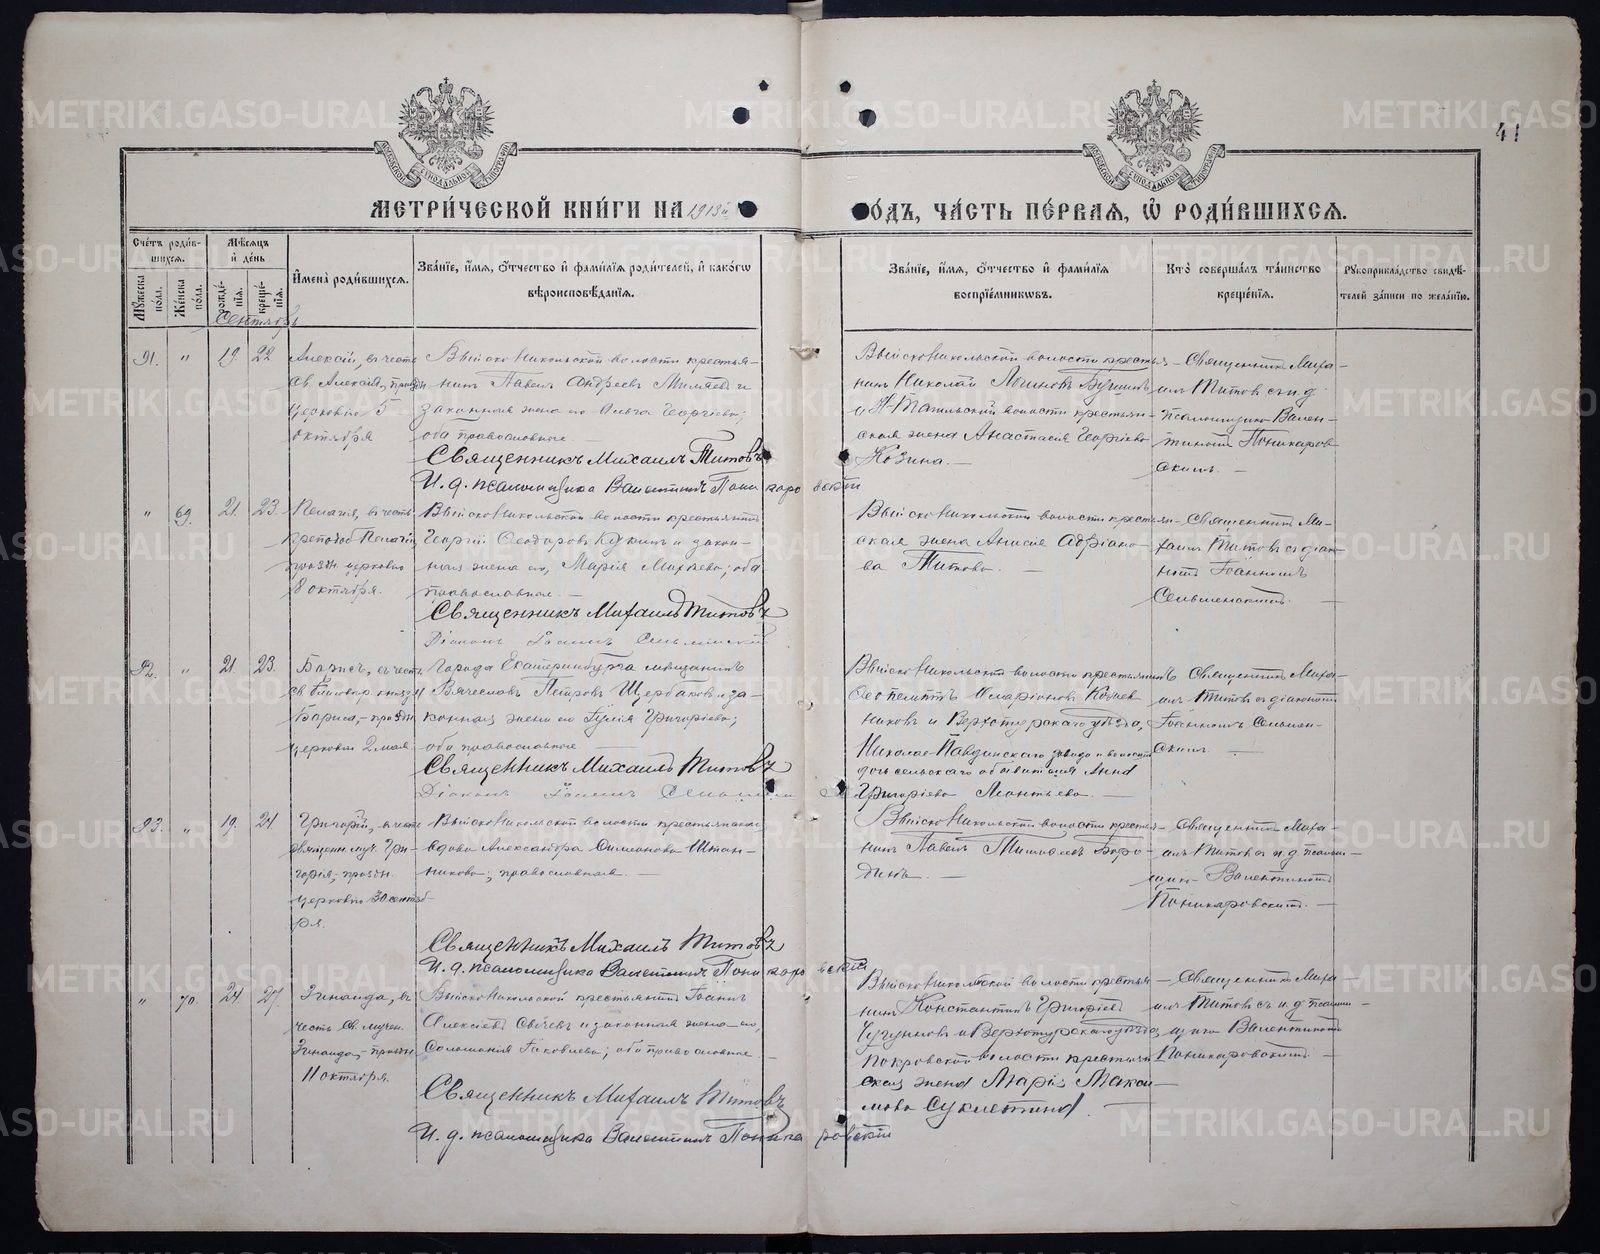 METRIKI.GASO-URAL.RU
41
МЕТРИ́ЧЕСКОЙ КНИ́ГИ НА 1913й
ОДЪ, ЧА́СТЬ ПЕ́РВАЯ, Ѡ РОДИ́ВШИХСЯ.
Сче́тъ роди́в-
шихся.
Му́жеска пола.
Же́нска по́ла.
Мѣ́сяцъ
и҆ де́нь
рожде́-
нїя.
креще́-
нїя.
И҆мена̀ роди́вшихся.
Зва́нїе, и҆́мя, ѻ҆́тчество и҆ фами́лїя роди́телей, и҆ како́гѡ
вѣроисповѣ́данїя.
Зва́нїе, и҆́мя, ѻ҆́тчество и҆ фами́лїя
воспрїе́мникѡвъ.
Кто̀ соверша́лъ та́инство
креще́нїя.
Рукоприкла́дство свидѣ́-
телей за́писи по жела́нїю.
Сентябрь
91. " 19. 22
Алексій, въ честь
Св. Алексія, праздн
церковью 5
октября
Выйско Никольской волости крестья-
нинъ Павелъ Андреевъ и
законная жена его Ольга Георгіева;
оба православные. —
Священникъ Михаилъ Титовъ
И. д. псаломщика Валентинъ Поникаровскій
Выйско Никольской волости крестья-
нинъ Николай Логиновъ
и Н-Тагильской волости крестьян-
ская жена Анастасія Георгіева
Козина. —
Священникъ Миха-
илъ Титовъ съ и. д.
псаломщика Вален-
тиномъ Поникаров-
скимъ. —
" 69. 21. 23.
Пелагія, въ честь
преподоб Пелагіи,
праздн. церковью
8 октября.
Выйско Никольской волости крестьянинъ
Георгій Ѳеодоровъ Кукинъ и закон-
ная жена его, Марія ; оба
православные. —
Священникъ Михаилъ Титовъ
Діаконъ Іоаннъ
Выйско Никольской волости крестьян-
ская жена Анисія Адріано-
ва Титова. —
Священникъ Ми-
хаилъ Титовъ съ діако-
номъ Іоанномъ
92. " 21. 23.
Борисъ, въ честь
св. благовѣр. князя
Бориса, – праздн
церковью 2 мая.
Города Екатеринбурга мѣщанинъ
Вячеславъ Петровъ Щербаковъ и за-
конная жена его Юлія Григоріева;
оба православные —
Священникъ Михаилъ Титовъ
Діаконъ Іоаннъ
Выйско Никольской волости крестьянинъ
Иларіоновъ
и Верхотурскаго уѣзда,
Николае-Павдинскаго завода и волости
дочь сельскаго обывателя Анна
Григоріева Леонтьева. —
Священникъ Миха-
илъ Титовъ съ діакономъ
Іоанномъ
93. " 19. 24.
Григорій, въ честь
священ. муч. Гри-
горія, – праздн.
церковью 30 сентяб-
ря.
Выйско Никольской волости крестьянская
вдова Александра Симеонова Штан-
никова; православная. —
Священникъ Михаилъ Титовъ
И. д. псаломщика Валентинъ Поникаровскій
Выйско Никольской волости крестья-
нинъ Павелъ Боро-
динъ. —
Священникъ Миха-
илъ Титовъ съ и. д. псалом-
щика Валентиномъ
Поникаровскимъ. —
" 70. 24 27.
Зинаида, въ
честь св. мучен.
Зинаиды, – праздн.
11 октября.
Выйско Никольской крестьянинъ Іоаннъ
Алексіевъ и законная жена его,
Соломонія Іаковлева; оба православные. —
Священникъ Михаилъ Титовъ
И. д. псаломщика Валентинъ Поникаровскій
Выйско Никольской волости крестья-
нинъ Константинъ Григоріевъ
Чугуновъ и Верхотурскаго уѣзда,
Покровской волости крестьян-
ская жена Марія Макси-
мова —
Священникъ Миха-
илъ Титовъ съ и. д. псалом-
щика Валентиномъ
Поникаровскимъ —